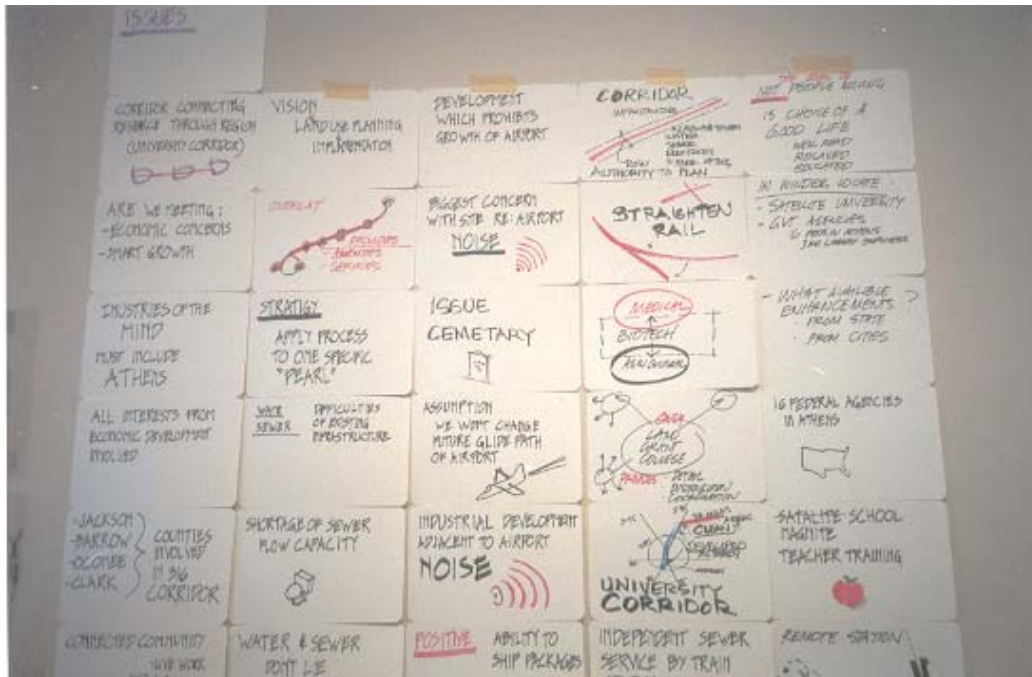 ISSUES
CORRIDOR CONNECTING
THROUGH REGION
(UNIVERSITY CORRIDOR)
VISION
LAND USE PLANNING
IMPLEMENTATION
DEVELOPMENT
WHICH PROHIBITS
GROWTH OF AIRPORT
CORRIDOR
INFRASTRUCTURE
WATER
SEWER
ROW
AUTHORITY TO PLAN
NOT PEOPLE MOVING
IS CHOICE OF A
GOOD LIFE
WELL READ
RELAXED
EDUCATED
ARE WE MEETING:
-ECONOMIC CONCERNS
-SMART GROWTH
OVERLAY
- SERVICES
BIGGEST CONCERN
WITH SITE RE: AIRPORT
NOISE
STRAIGHTEN
RAIL
IN WINDER, LOCATE
- SATELLITE UNIVERSITY
- GVT AGENCIES
INDUSTRIES OF THE
MIND
MUST INCLUDE
ATHENS
STRATIGY
APPLY PROCESS
TO ONE SPECIFIC
"PEARL"
ISSUE
CEMETARY
MEDICAL
BIOTECH
AGRICULTURE
- WHAT AVAILABLE
ENHANCEMENTS
FROM STATE
FROM CITIES
ALL INTERESTS FROM
ECONOMIC DEVELOPMENT
INVOLVED
SEWER
DIFFICULTIES
OF EXISTING
INFRASTRUCTURE
ASSUMPTION
WE WON'T CHANGE
FUTURE GLIDE PATH
OF AIRPORT
LAND
GRANT
COLLEGE
16 FEDERAL AGENCIES
IN ATHENS
-JACKSON
-BARROW
-OCONEE
-CLARK
COUNTIES
INVOLVED
IN 316
CORRIDOR
SHORTAGE OF SEWER
FLOW CAPACITY
INDUSTRIAL DEVELOPMENT
ADJACENT TO AIRPORT
NOISE
CLEAN
UNIVERSITY
CORRIDOR
SATALITE SCHOOL
MAGNITE
TEACHER TRAINING
CONNECTED COMMUNITY
LIVE WORK
WATER & SEWER
DON'T LIE
POSITIVE ABILITY TO
SHIP PACKAGES
INDEPENDENT SEWER
SERVICE BY TRAIN
REMOTE STATION